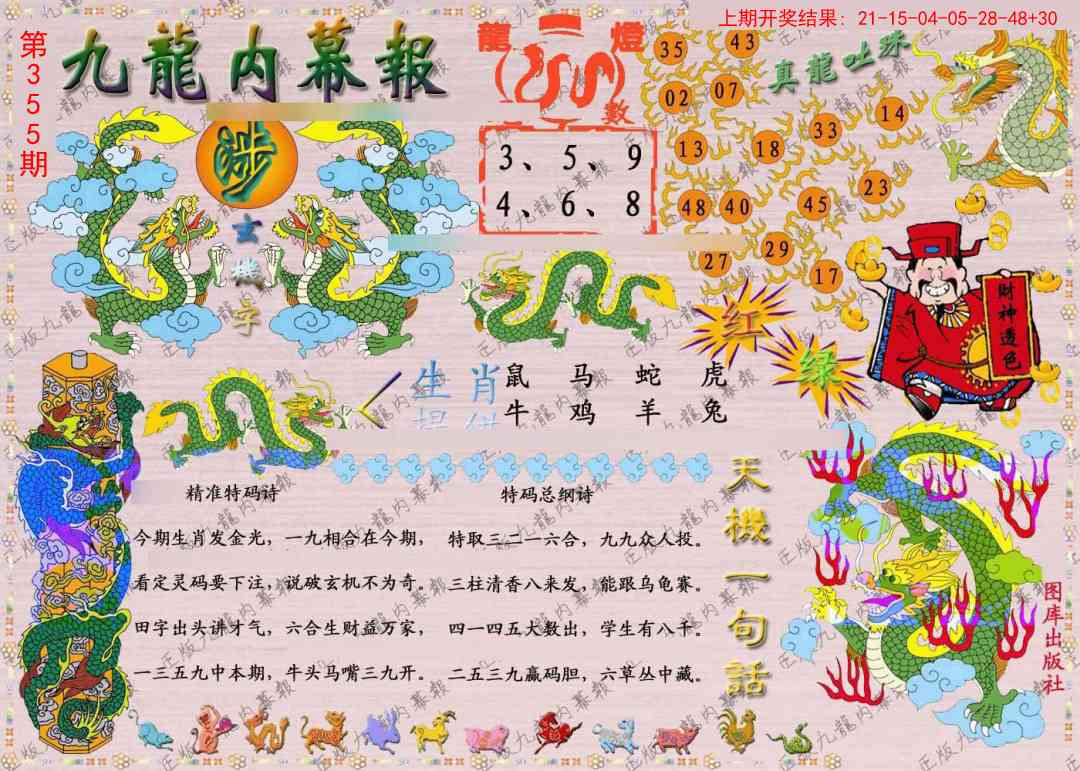 上期开奖结果: 21-15-04-05-28-48+30
第355期
九龍内幕報
龍燈數
3、5、9
4、6、8
真龍吐珠
35 43
02 07
14
33
13 18
23
48 40 45
29
27 17
涉
玄機字
财神透色
红
绿
生肖
提供
鼠 马 蛇 虎
牛 鸡 羊 兔
精准特码诗
今期生肖发金光，一九相合在今期，
看定灵码要下注，说破玄机不为奇。
田字出头讲才气，六合生财益万家，
一三五九中本期，牛头马嘴三九开。
特码总纲诗
特取三二一六合，九九众人投。
三柱清香八来发，能跟乌龟赛。
四一四五大数出，学生有八十。
二五三九赢码胆，六草丛中藏。
天機一句話
图库出版社
正版九龍内幕報